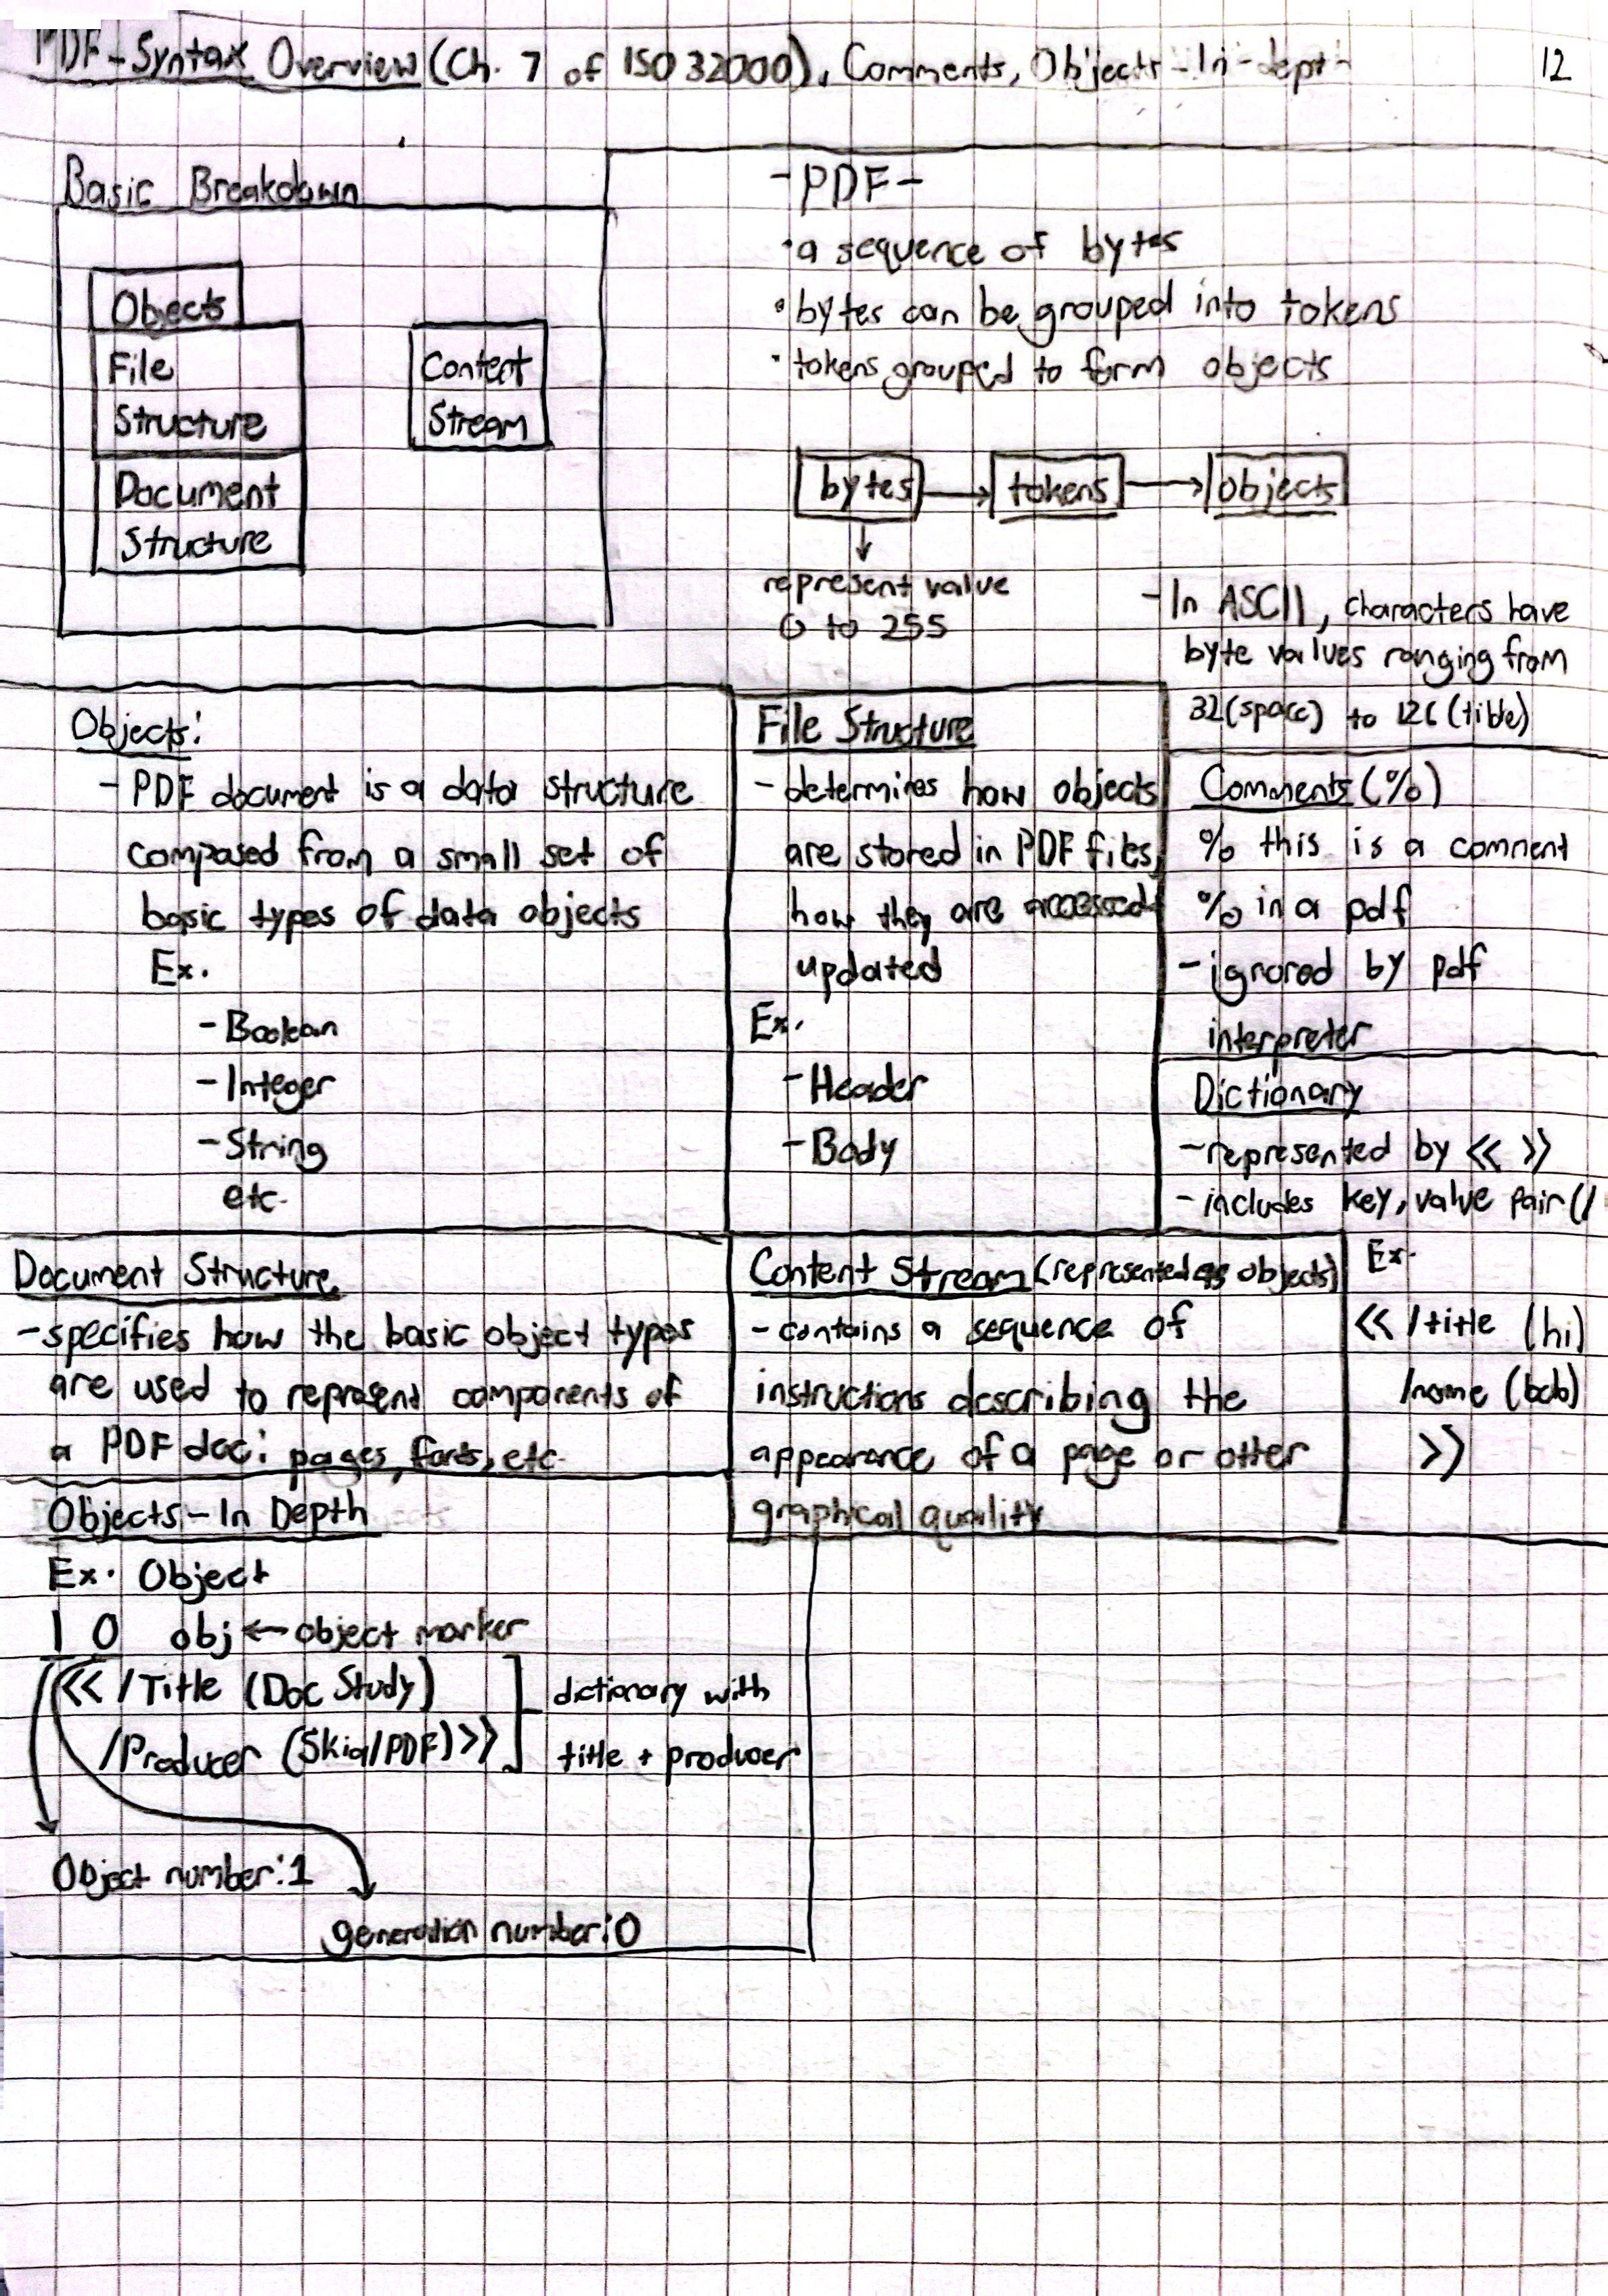 PDF-Syntax Overview (Ch. 7 of ISO 32000), Comments, Objects-In-depth
12
Basic Breakdown
Objects
File
Structure
Document
Structure
Content
Stream
-PDF-
• a sequence of bytes
• bytes can be grouped into tokens
• tokens grouped to form objects
bytes → tokens → objects
represent value
0 to 255
- In ASCII, characters have
byte values ranging from
32(space) to 126(tilde)
Objects:
- PDF document is a data structure
composed from a small set of
basic types of data objects
Ex.
- Boolean
- Integer
- String
etc.
File Structure
- determines how objects
are stored in PDF files,
how they are accessed,
updated
Ex.
- Header
- Body
Comments (%)
% this is a comment
% in a pdf
- ignored by pdf
interpreter
Dictionary
- represented by << >>
- includes key, value pair (/
Ex.
<< /title (hi)
/name (bob)
>>
Document Structure
- specifies how the basic object types
are used to represent components of
a PDF doc: pages, fonts, etc.
Content Stream (represented as objects)
- contains a sequence of
instructions describing the
appearance of a page or other
graphical quality
Objects - In Depth
Ex. Object
1 0 obj ← object marker
<< /Title (Doc Study)
/Producer (Skia/PDF) >>
dictionary with
title + producer
Object number: 1
generation number: 0